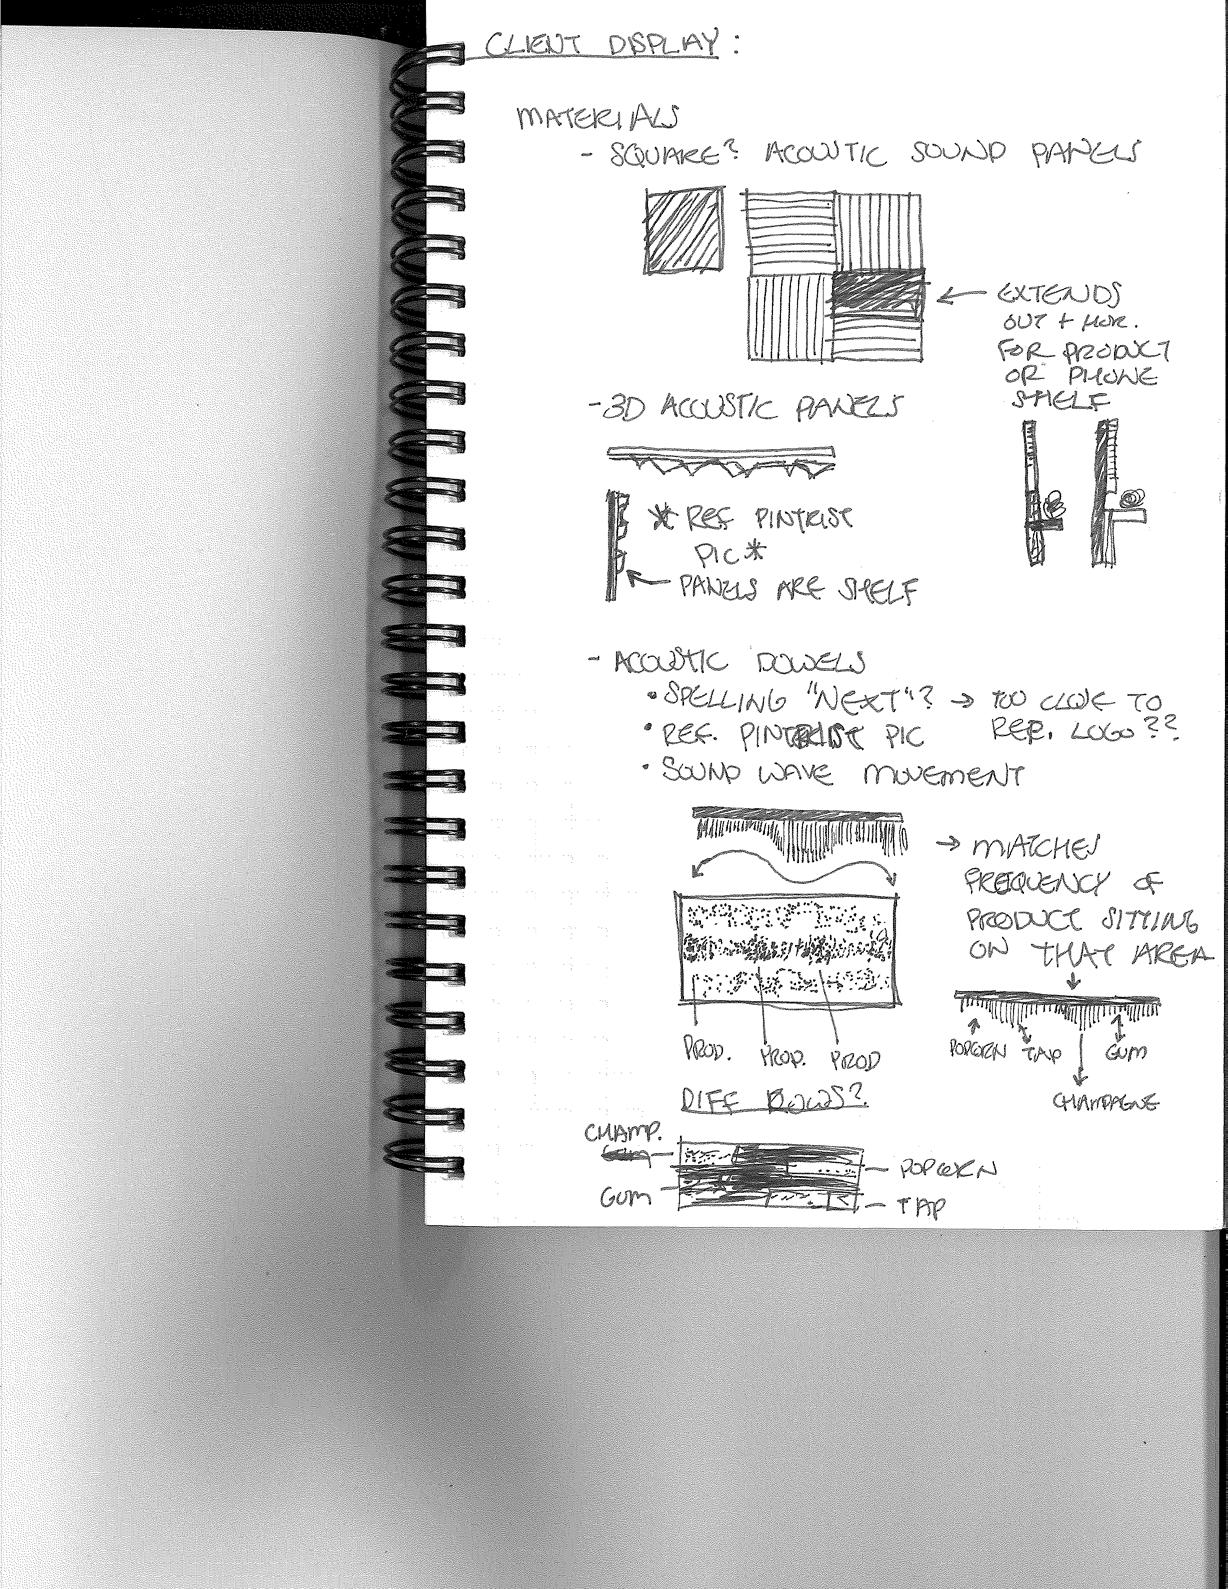 CLIENT DISPLAY:
MATERIALS
- SQUARE? ACOUSTIC SOUND PANELS
← EXTENDS
OUT + HOR.
FOR PRODUCT
OR PHONE
SHELF
- 3D ACOUSTIC PANELS
* REF PINTRIST
PIC *
← PANELS ARE SHELF
- ACOUSTIC DOWELS
• SPELLING "NEXT"? → TOO CLOSE TO
REF. LOGO??
• REF. PINTRIST PIC
• SOUND WAVE MOVEMENT
→ MATCHES
FREQUENCY OF
PRODUCT SITTING
ON THAT AREA
PROD. PROD. PROD
POPCORN TAP GUM
CHAMPAGNE
DIFF ROWS?
CHAMP.
GUM
POPCORN
TAP